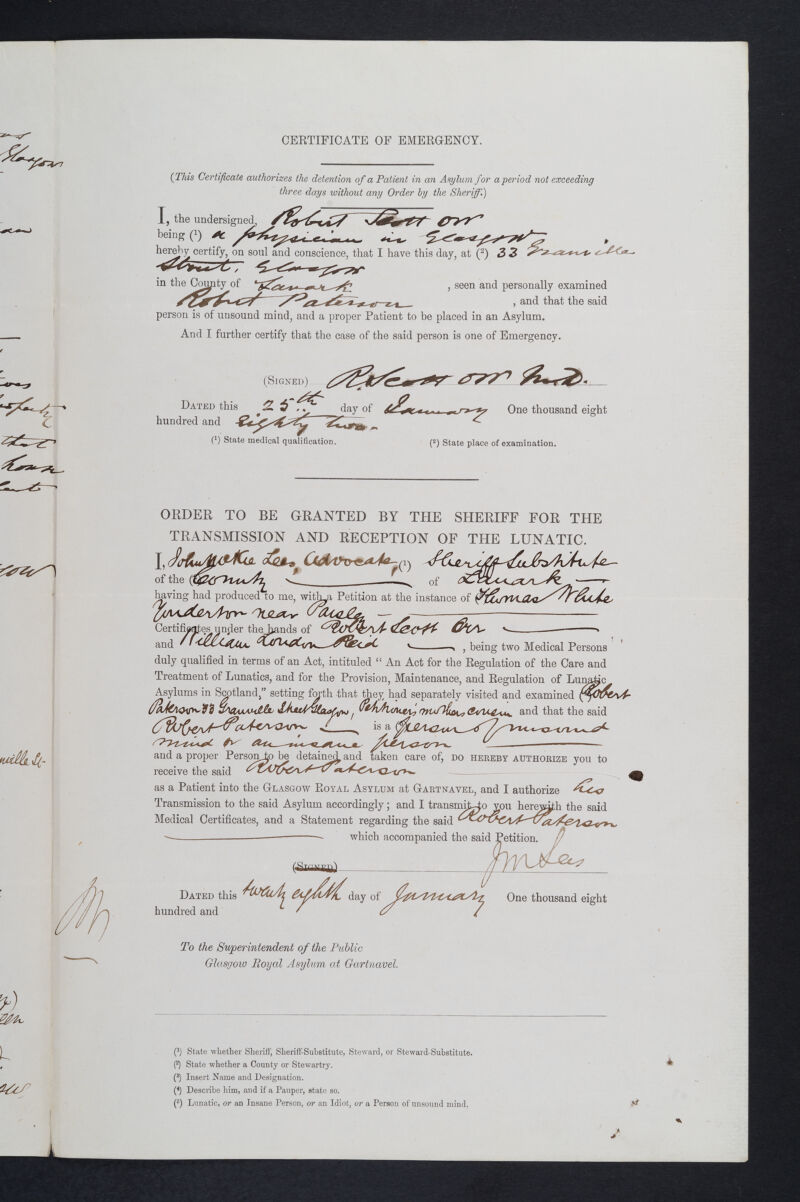 CERTIFICATE OF EMERGENCY.
(This Certificate authorizes the detention of a Patient in an Asylum for a period not exceeding
three days without any Order by the Sheriff.)
I, the undersigned, Robert Scott Orr
being (1) a physician in Glasgow
hereby certify, on soul and conscience, that I have this day, at (2) 33 Granville
Street, Glasgow
in the County of Lanark , seen and personally examined
Robert Paterson , and that the said
person is of unsound mind, and a proper Patient to be placed in an Asylum.
And I further certify that the case of the said person is one of Emergency.
(SIGNED) R. Scott Orr M.D.
DATED this 25th day of January One thousand eight
hundred and Eighty two.
(1) State medical qualification. (2) State place of examination.
ORDER TO BE GRANTED BY THE SHERIFF FOR THE
TRANSMISSION AND RECEPTION OF THE LUNATIC.
I, John McKie Lees, Advocate, (1) Sheriff Substitute
of the County of Lanark
having had produced to me, with a Petition at the instance of Thomas White
Yonderton near Paisley
Certificates under the hands of Robert Scott Orr
and William London Reid , being two Medical Persons
duly qualified in terms of an Act, intituled " An Act for the Regulation of the Care and
Treatment of Lunatics, and for the Provision, Maintenance, and Regulation of Lunatic
Asylums in Scotland," setting forth that they had separately visited and examined Robert
Paterson 33 Granville Street Glasgow, Petitioner's mother's cousin and that the said
Robert Paterson is a person of unsound
mind or an insane person
and a proper Person to be detained and taken care of, DO HEREBY AUTHORIZE you to
receive the said Robert Paterson
as a Patient into the GLASGOW ROYAL ASYLUM AT GARTNAVEL, and I authorize his
Transmission to the said Asylum accordingly; and I transmit to you herewith the said
Medical Certificates, and a Statement regarding the said Robert Paterson
which accompanied the said Petition.
(SIGNED) J M Lees
DATED this twenty eighth day of January One thousand eight
hundred and
To the Superintendent of the Public
Glasgow Royal Asylum at Gartnavel.
(1) State whether Sheriff, Sheriff-Substitute, Steward, or Steward-Substitute.
(2) State whether a County or Stewartry.
(3) Insert Name and Designation.
(4) Describe him, and if a Pauper, state so.
(5) Lunatic, or an Insane Person, or an Idiot, or a Person of unsound mind.
Glasgow
that
house